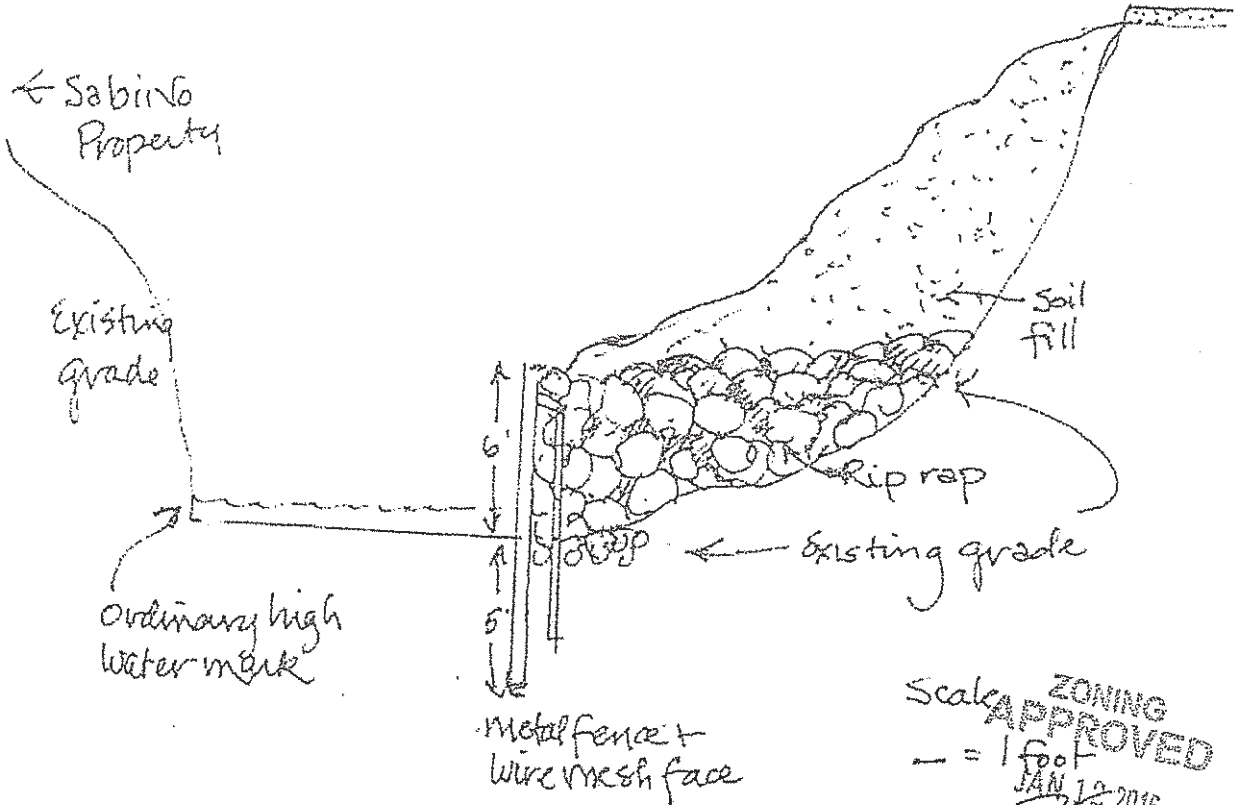 ← Sabino
Property
Existing
grade
Soil
fill
6'
Rip rap
← Existing grade
5'
Ordinary high
water mark
Metal fence +
wire mesh face
Scale
— = 1 foot
ZONING
APPROVED
JAN 2016